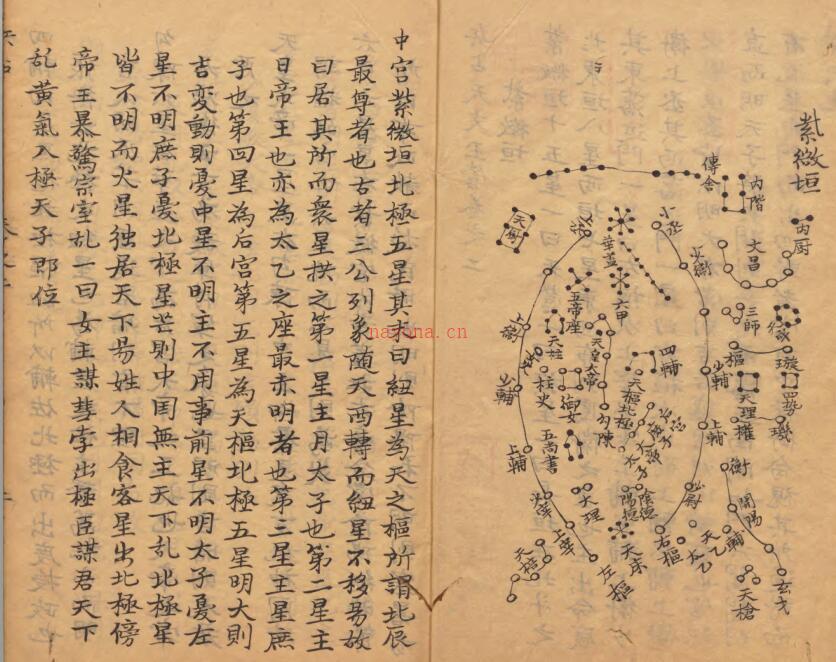 紫微垣
內階
傳舍
內厨
文昌
天厨
華蓋
六甲
五帝座
天柱
天皇大帝
四輔
柱史
御女
五尚書
天樞北極
勾陳
大理
陰德
陽德
天床
左樞
右樞
上宰
少宰
上輔
少輔
上輔
少輔
少衛
小丞
少尉
三師
樞
璇
天理
權
璣
衡
開陽
輔
天乙
太乙
玄戈
天槍
天棓
中宮紫微垣北極五星其末曰紐星為天之樞所謂北辰
最尊者也古者三公列象随天西轉而紐星不移易故
曰居其所而衆星拱之第一星主月太子也第二星主
日帝王也亦為太乙之座最赤明者也第三星主星庶
子也第四星為后宮第五星為天樞北極五星明大則
吉变動則憂中星不明主不用事前星不明太子憂左
星不明庶子憂北極星芒則中国無主天下乱北極星
皆不明而火星独居天下易姓人相食客星出北極傍
帝王暴驚宗室乱一曰女主謀彗孛出極臣謀君天下
乱黃氣入極天子即位
nazona.cn